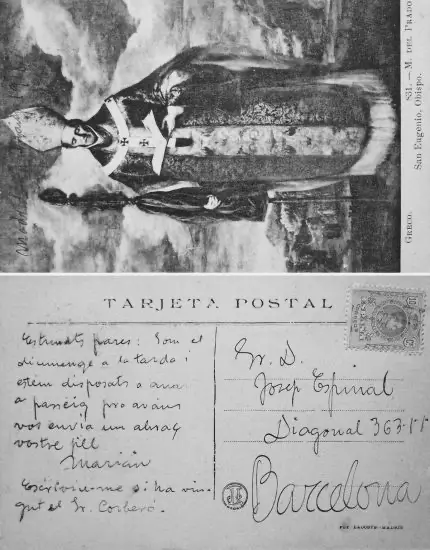 GRECO. 831. — M. DEL PRADO
San Eugenio, Obispo.
TARJETA POSTAL
Estimats pares: Som el
diumenge a la tarda i
estem disposats a anar
a passeig pro avans
vos envia un abraç
vostre fill
Marián
Escrivise-me si ha vin-
gut el Sr. Corberó.
Sr. D.
Josep Espinal
Diagonal 363-
Barcelona
LACOSTE-MADRID